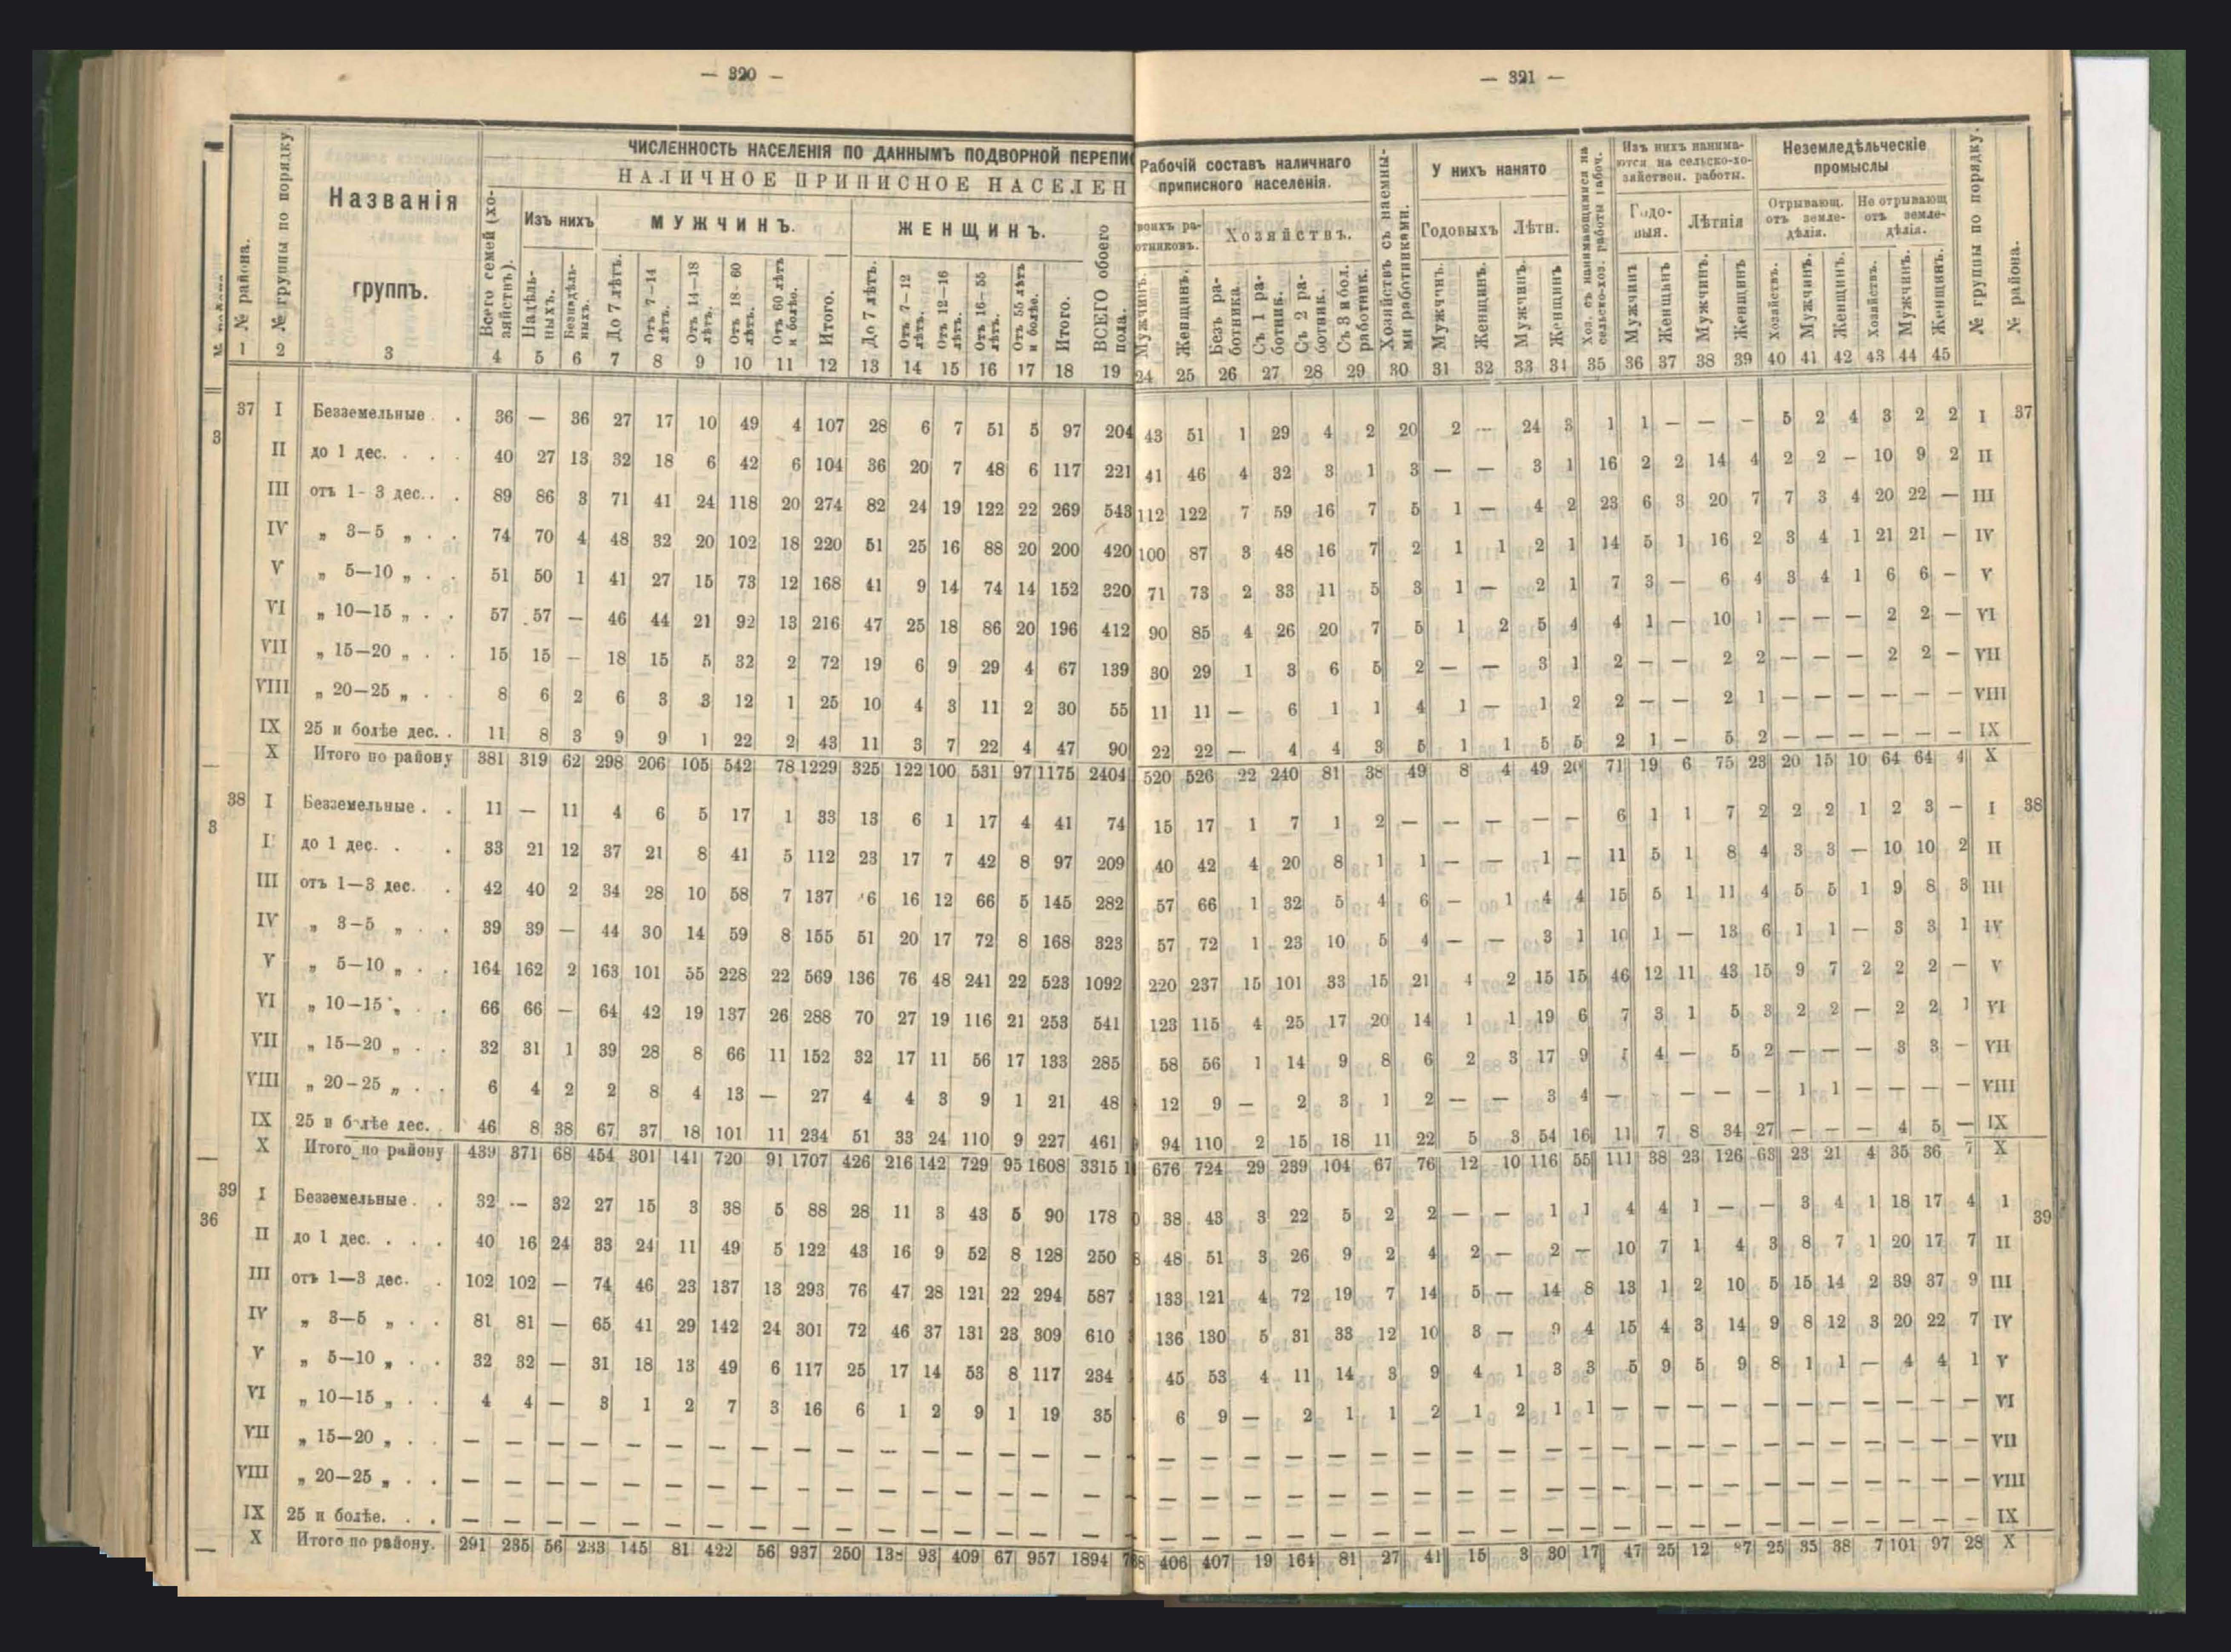 — 320 —
ЧИСЛЕННОСТЬ НАСЕЛЕНІЯ ПО ДАННЫМЪ ПОДВОРНОЙ ПЕРЕПИ
НАЛИЧНОЕ ПРИПИСНОЕ НАСЕЛЕН
№ района.
№ группы по порядку
Названія группъ.
Всего семей (хозяйствъ).
Изъ нихъ
Надѣльныхъ.
Безнадѣльныхъ.
МУЖЧИНЪ.
До 7 лѣтъ.
Отъ 7—14 лѣтъ.
Отъ 14—18 лѣтъ.
Отъ 18-60 лѣтъ.
Отъ 60 лѣтъ и болѣе.
Итого.
ЖЕНЩИНЪ.
До 7 лѣтъ.
Отъ 7—12 лѣтъ.
Отъ 12—16 лѣтъ.
Отъ 16—55 лѣтъ.
Отъ 55 лѣтъ и болѣе.
Итого.
ВСЕГО обоего пола.
1 2 3 4 5 6 7 8 9 10 11 12 13 14 15 16 17 18 19
37 I Безземельные . . 36 — 36 27 17 10 49 4 107 28 6 7 51 5 97 204
3
II до 1 дес. . . . 40 27 13 32 18 6 42 6 104 36 20 7 48 6 117 221
III отъ 1-3 дес. . . 89 86 3 71 41 24 118 20 274 82 24 19 122 22 269 543
IV „ 3—5 „ . . 74 70 4 48 32 20 102 18 220 51 25 16 88 20 200 420
V „ 5—10 „ . . 51 50 1 41 27 15 73 12 168 41 9 14 74 14 152 320
VI „ 10—15 „ . . 57 57 — 46 44 21 92 13 216 47 25 18 86 20 196 412
VII „ 15—20 „ . . 15 15 — 18 15 5 32 2 72 19 6 9 29 4 67 139
VIII „ 20—25 „ . . 8 6 2 6 3 3 12 1 25 10 4 3 11 2 30 55
IX 25 и болѣе дес. . 11 8 3 9 9 1 22 2 43 11 3 7 22 4 47 90
X Итого по району 381 319 62 298 206 105 542 78 1229 325 122 100 531 97 1175 2404
38 I Безземельные . . 11 — 11 4 6 5 17 1 33 13 6 1 17 4 41 74
3
I до 1 дес. . . 33 21 12 37 21 8 41 5 112 23 17 7 42 8 97 209
III отъ 1—3 дес. . 42 40 2 34 28 10 58 7 137 6 16 12 66 5 145 282
IV „ 3—5 „ . . 39 39 — 44 30 14 59 8 155 51 20 17 72 8 168 323
V „ 5—10 „ . . 164 162 2 163 101 55 228 22 569 136 76 48 241 22 523 1092
VI „ 10—15 „ . . 66 66 — 64 42 19 137 26 288 70 27 19 116 21 253 541
VII „ 15—20 „ . . 32 31 1 39 28 8 66 11 152 32 17 11 56 17 133 285
VIII „ 20—25 „ . . 6 4 2 2 8 4 13 — 27 4 4 3 9 1 21 48
IX 25 и б лѣе дес. . 46 8 38 67 37 18 101 11 234 51 33 24 110 9 227 461
X Итого по району 439 371 68 454 301 141 720 91 1707 426 216 142 729 95 1608 3315
39 I Безземельные . . 32 — 32 27 15 3 38 5 88 28 11 3 43 5 90 178
36
II до 1 дес. . . . 40 16 24 33 24 11 49 5 122 43 16 9 52 8 128 250
III отъ 1—3 дес. . 102 102 — 74 46 23 137 13 293 76 47 28 121 22 294 587
IV „ 3—5 „ . . 81 81 — 65 41 29 142 24 301 72 46 37 131 23 309 610
V „ 5—10 „ . . 32 32 — 31 18 13 49 6 117 25 17 14 53 8 117 234
VI „ 10—15 „ . . 4 4 — 3 1 2 7 3 16 6 1 2 9 1 19 35
VII „ 15—20 „ . . — — — — — — — — — — — — — — — —
VIII „ 20—25 „ . . — — — — — — — — — — — — — — — —
IX 25 и болѣе. . . — — — — — — — — — — — — — — — —
X Итого по району. 291 235 56 233 145 81 422 56 937 250 93 409 67 957 1894
— 321 —
Рабочій составъ наличнаго приписного населенія.
Мужчинъ.
Женщинъ.
Хозяйствъ.
Безъ работника.
Съ 1 работник.
Съ 2 работник.
Съ 3 и бол. работник.
Хозяйствъ съ наемными работниками.
У нихъ нанято
Годовыхъ
Мужчинъ.
Женщинъ.
Лѣтн.
Мужчинъ.
Женщинъ
Хоз. съ нанимающимися на сельско-хоз. работы рабоч.
Изъ нихъ нанимаются на сельско-хозяйствен. работы.
Годовыя.
Мужчинъ
Женщинъ
Лѣтнія
Мужчинъ.
Женщинъ
Неземледѣльческіе промыслы
Отрывающ. отъ земледѣлія.
Хозяйствъ.
Мужчинъ.
Женщинъ.
Не отрывающ отъ земледѣлія.
Хозяйствъ.
Мужчинъ.
Женщинъ.
№ группы по порядку.
№ района.
24 25 26 27 28 29 30 31 32 33 34 35 36 37 38 39 40 41 42 43 44 45
43 51 1 29 4 2 20 2 — 24 3 1 1 — — — 5 2 4 3 2 2 I 37
41 46 4 32 3 1 3 — — 3 1 16 2 2 14 4 2 2 — 10 9 2 II
112 122 7 59 16 7 5 1 — 4 2 23 6 3 20 7 7 3 4 20 22 — III
100 87 3 48 16 7 2 1 1 2 1 14 5 1 16 2 3 4 1 21 21 — IV
71 73 2 33 11 5 3 1 — 2 1 7 3 — 6 4 3 4 1 6 6 — V
90 85 4 26 20 7 5 1 2 5 4 4 1 — 10 1 — — — 2 2 — VI
30 29 1 3 6 5 2 — — 3 1 2 — — 2 2 — — — 2 2 — VII
11 11 — 6 1 1 4 1 — 1 2 2 — — 2 1 — — — — — — VIII
22 22 — 4 4 3 5 1 1 5 5 2 1 — 5 2 — — — — — — IX
520 526 22 240 81 38 49 8 4 49 20 71 19 6 75 23 20 15 10 64 64 4 X
15 17 1 7 1 2 — — — — — 6 1 1 7 2 2 2 1 2 3 — I 38
40 42 4 20 8 1 1 — — 1 — 11 5 1 8 4 3 3 — 10 10 2 II
57 66 1 32 5 4 6 — 1 4 4 15 5 1 11 4 5 5 1 9 8 3 III
57 72 1 23 10 5 4 — — 3 1 10 1 — 13 6 1 1 — 3 3 1 IV
220 237 15 101 33 15 21 4 2 15 15 46 12 11 43 15 9 7 2 2 2 — V
123 115 4 25 17 20 14 1 1 19 6 7 3 1 5 3 2 2 — 2 2 1 VI
58 56 1 14 9 8 6 2 3 17 9 4 — 5 2 — — — 3 3 — VII
12 9 — 2 3 1 2 — — 3 4 — — — — — 1 1 — — — — VIII
94 110 2 15 18 11 22 5 3 54 16 11 7 8 34 27 — — — 4 5 — IX
676 724 29 239 104 67 76 12 10 116 55 111 38 23 126 63 23 21 4 35 36 7 X
38 43 3 22 5 2 2 — — 1 1 4 4 1 — — 3 4 1 18 17 4 I 39
48 51 3 26 9 2 4 2 — 2 — 10 7 1 4 3 8 7 1 20 17 7 II
133 121 4 72 19 7 14 5 — 14 8 13 1 2 10 5 15 14 2 39 37 9 III
136 130 5 31 33 12 10 3 — 9 4 15 4 3 14 9 8 12 3 20 22 7 IV
45 53 4 11 14 3 9 4 1 3 3 5 9 5 9 8 1 1 — 4 4 1 V
6 9 — 2 1 1 2 1 2 1 1 — — — — — — — — — — — VI
— — — — — — — — — — — — — — — — — — — — — — VII
— — — — — — — — — — — — — — — — — — — — — — VIII
— — — — — — — — — — — — — — — — — — — — — — IX
406 407 19 164 81 27 41 15 3 30 17 47 25 12 7 25 35 38 7 101 97 28 X